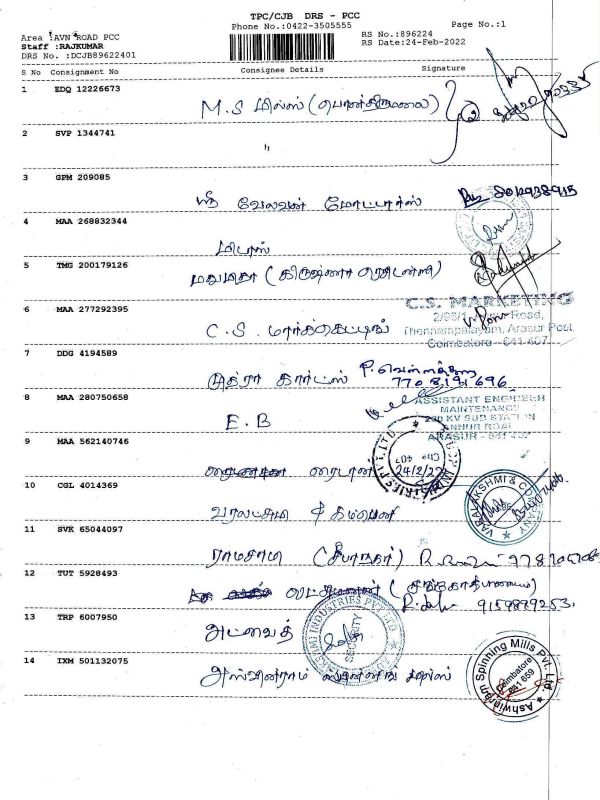 TPC/CJB DRS - PCC
Phone No.:0422-3505555
Page No.:1
Area :AVN ROAD PCC
RS No.:896224
Staff :RAJKUMAR
RS Date:24-Feb-2022
DRS No. :DCJB89622401
S No Consignment No Consignee Details Signature
1 EDQ 12226673
M.S மில்ஸ் (பொண்திருமலை)
2 SVP 1344741
"
3 GPM 209085
ஸ்ரீ வேலவன் மோட்டார்ஸ்
4 MAA 268832344
மிடாஸ்
5 TMG 200179126
மதுமிதா (கிருஷ்ணா
6 MAA 277292395
C.S. MARKETING
Road,
Thennampalayam, Arasur Post
Coimbatore - 641 407
C.S. மார்க்கெட்டிங்
7 DDG 4194589
கார்ட்ஸ்
7708191696
8 MAA 280750658
E.B
ASSISTANT ENGINEER
MAINTENANCE
230 KV SUB STATION
ANNUR ROAD
ARASUR - 641 407
9 MAA 562140746
ரைடான்
24/2/22
10 CGL 4014369
வரலட்சுமி & கம்பெனி
VARALAKSHMI & COMPANY
11 SVK 65044097
ராமசாமி
12 TUT 5928493
லட்சுமணன்
9159879253
13 TRP 6007950
அட்வைத்
INDUSTRIES PVT LTD
SECURITY
14 IXM 501132075
அஸ்வின்ராம் ஸ்பின்னிங் மில்ஸ்
Ashwinram Spinning Mills Pvt. Ltd.
Coimbatore
641 659